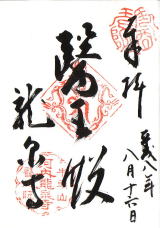 奉拝
平成八年
八月十六日
醫王殿
龍泉寺